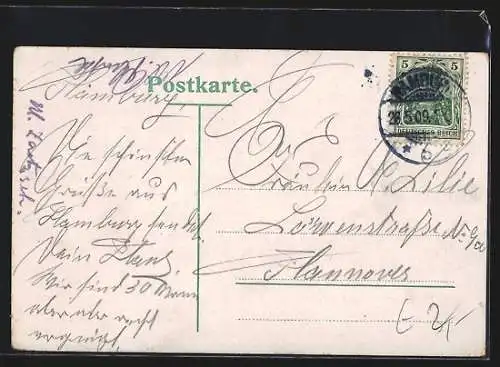 Postkarte.
Hamburg,
Die schönsten
Grüße aus
Hamburg sendet
Dein Hans
Wir sind 30 Mann
aber aber recht
vergnügt
Fräulein K. Lilie
Löwenstraße No 9a
Hannover
5 5
HAMBURG
26.5.09.
DEUTSCHES REICH